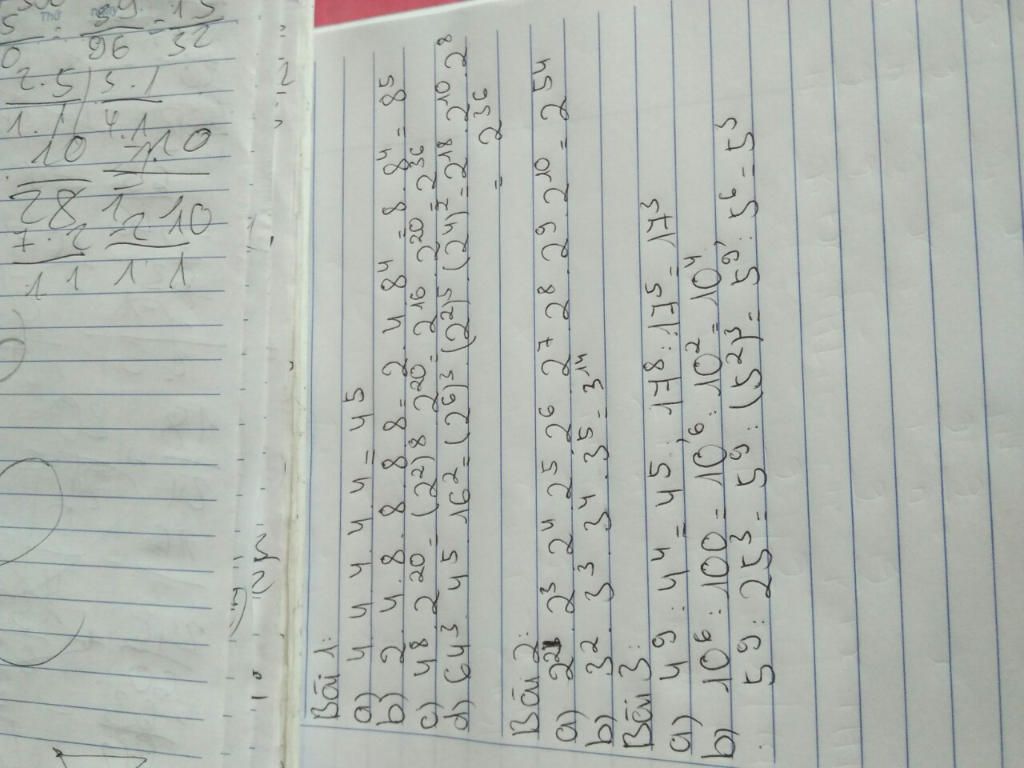 Bài 1:
a) 4.4.4.4.4 = 4⁵
b) 2.4.8.8.8.8 = 2.4.8⁴ = 8.8⁴ = 8⁵
c) 4⁸.2²⁰ = (2²)⁸.2²⁰ = 2¹⁶.2²⁰ = 2³⁶
d) 64³.4⁵.16² = (2⁶)³.(2²)⁵.(2⁴)² = 2¹⁸.2¹⁰.2⁸
= 2³⁶
Bài 2:
a) 2².2³.2⁴.2⁵.2⁶.2⁷.2⁸.2⁹.2¹⁰ = 2⁵⁴
b) 3².3³.3⁴.3⁵ = 3¹⁴
Bài 3:
a) 4⁹:4⁴ = 4⁵; 17⁸:17⁵ = 17³
b) 10⁶:100 = 10⁶:10² = 10⁴
5⁹:25³ = 5⁹:(5²)³ = 5⁹:5⁶ = 5³